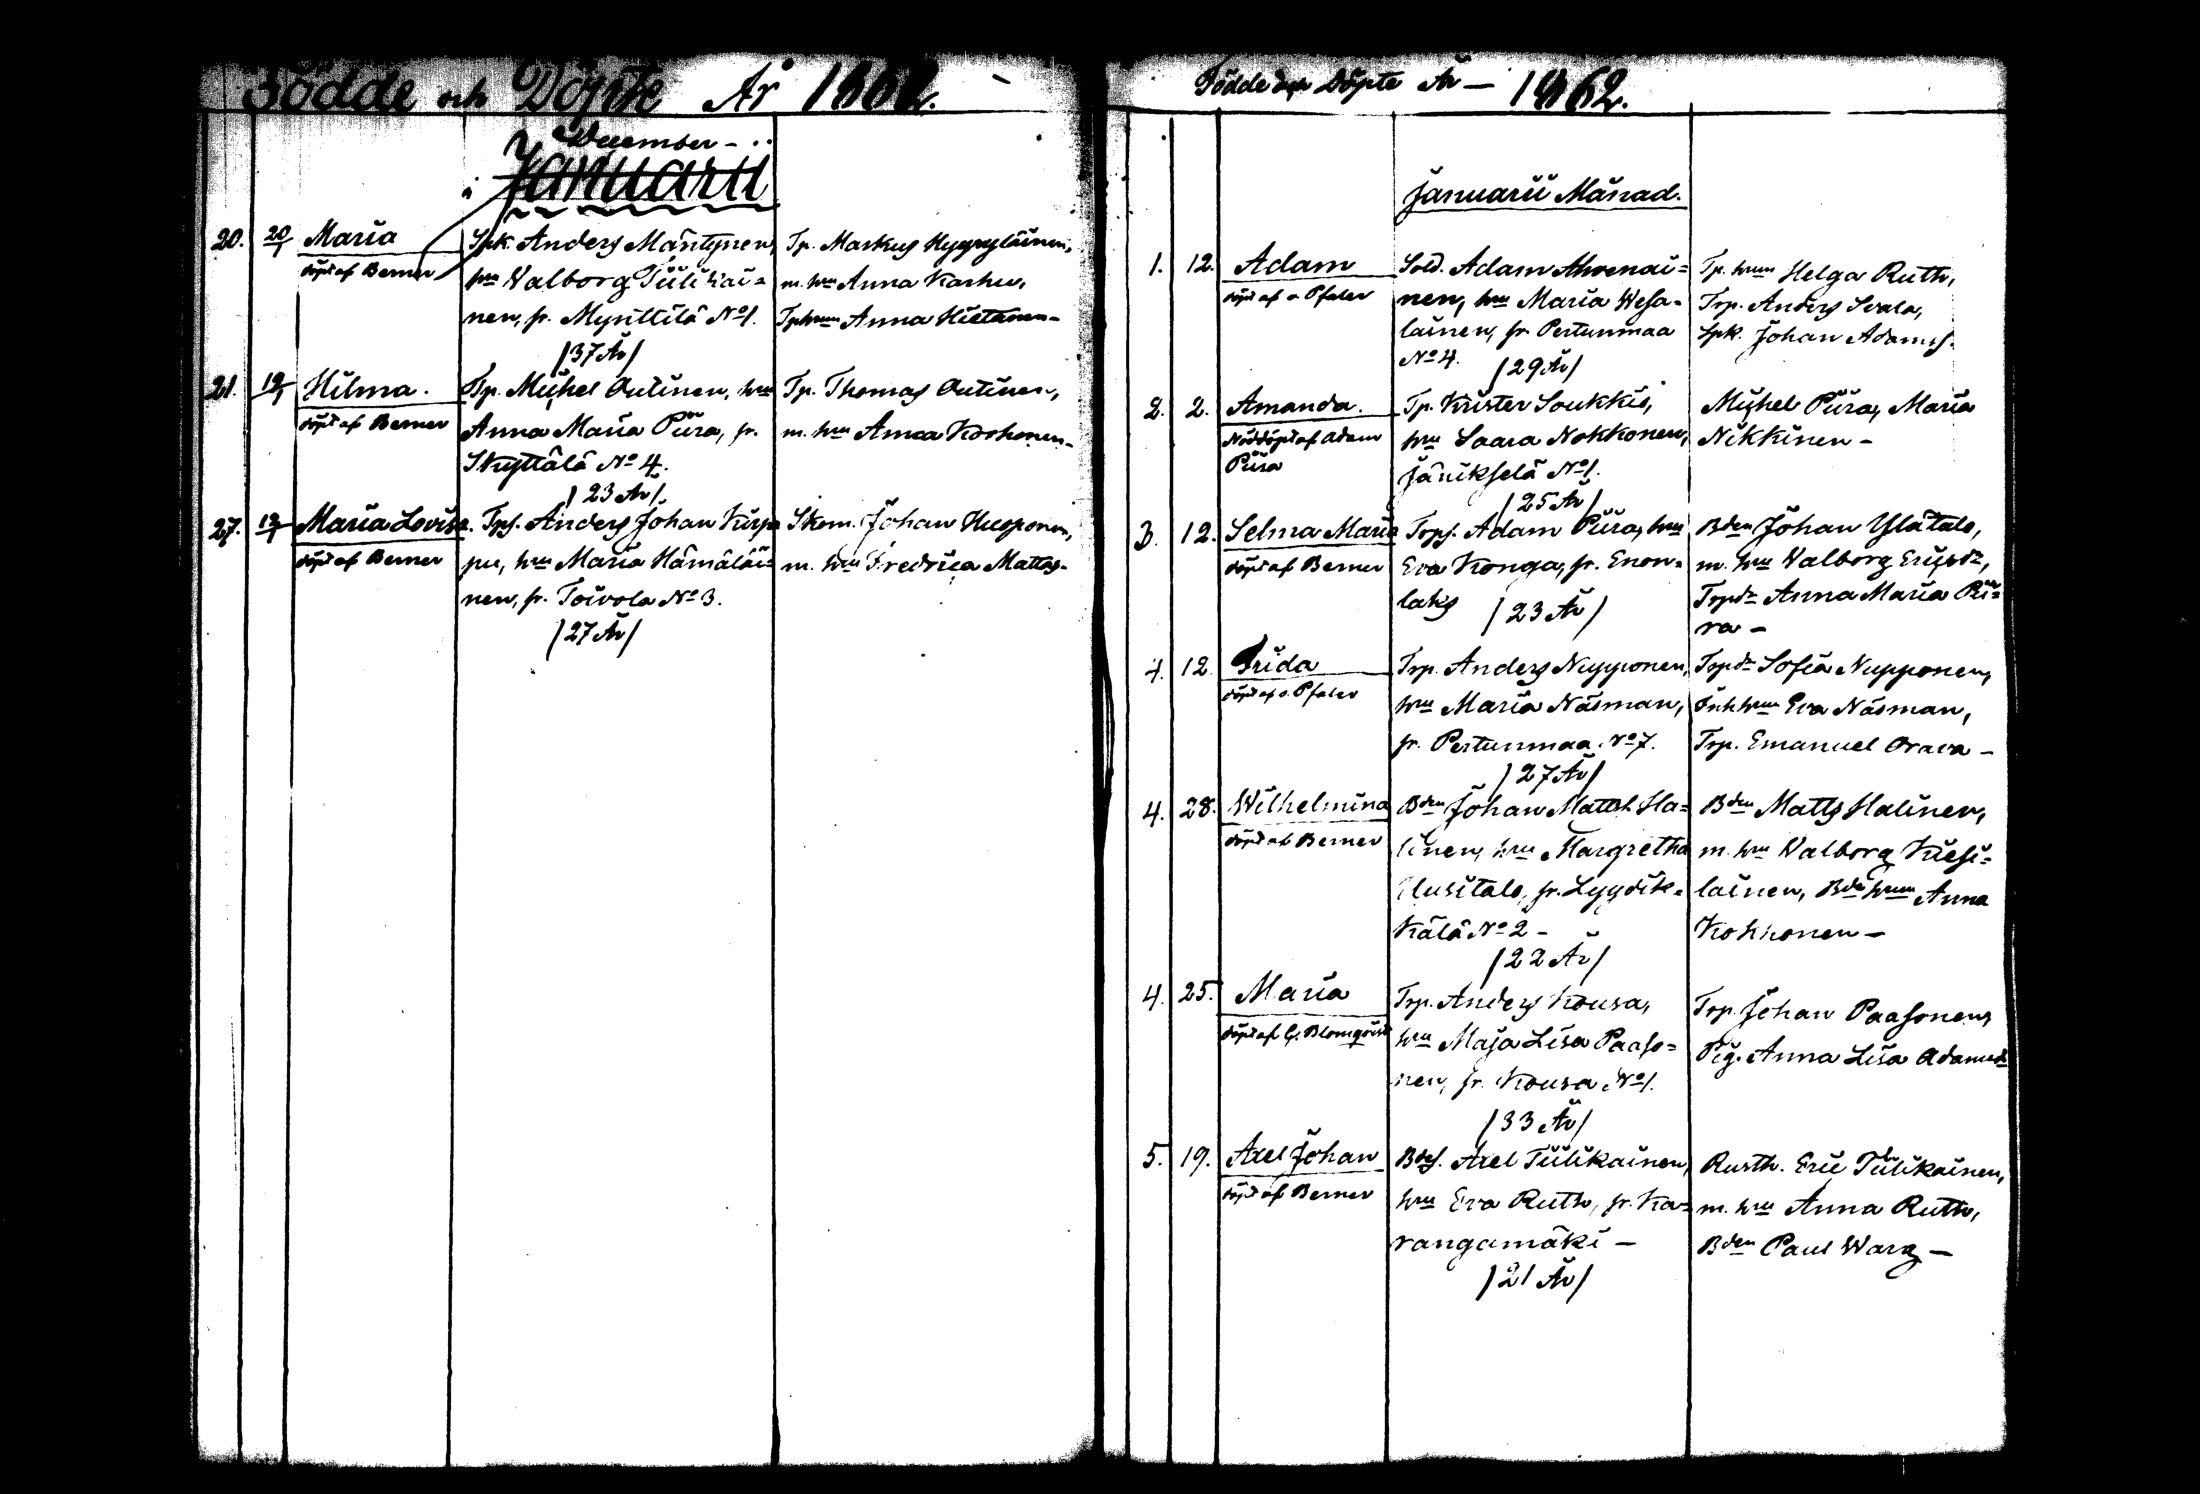 Födde och Döpte År 1862.
December -
i Januarii
20. 20/1 Maria
döpt af Berner
Spk. Anders Mäntynen,
hru Walborg Tiilikai=
nen, fr. Mynttilä No 1.
/37 År/
Tp. Markus Hyyryläinen,
m. hru Anna Karhu,
Tphrun Anna Hietanen -
21. 12/1 Hilma.
döpt af Berner
Tp. Michel Outinen, hru
Anna Maria Piira, fr.
Skyttälä No 4.
/23 År/
Tp. Thomas Outinen,
m. hru Anna Korhonen -
27. 12/1 Maria Lovisa.
döpt af Berner
Tps. Anders Johan Kirp=
pu, hru Maria Hämäläi=
nen, fr. Toivola No 3.
/27 År/
Skom. Johan Huoponen,
m. hru Fredrica Matts-
Födde och Döpte År - 1862.
Januarii Månad.
1. 12. Adam
döpt af v. Pfaler
Sold. Adam Ahvenai=
nen, hru Maria Wesa=
lainen, fr. Pertunmaa
No 4. /29 År/
Tp. hrun Helga Ruth,
Trp. Anders Svala,
Spk. Johan Adamss.
2. 2. Amanda.
Nöddöpt af Adam
Piira
Tp. Krister Soukkio,
hru Saara Nokkonen,
Jänikselä No 1.
/25 År/
Michel Piira, Maria
Nikkinen -
3. 12. Selma Maria
döpt af Berner
Trps. Adam Piira, hru
Eva Konga, fr. Enon=
laks /23 År/
Bden Johan Ylätalo,
m. hru Walborg Ericsdr,
Trpdr Anna Maria Pii=
ra -
4. 12. Frida
döpt af v. Pfaler
Trp. Anders Nupponen,
hru Maria Näsman,
fr. Pertunmaa No 7.
/27 År/
Trpdr Sofia Nupponen,
Inhhrun Eva Näsman,
Trp. Emanuel Orava -
4. 28. Wilhelmina
döpt af Berner
Bden Johan Matts. Ha=
linen, hru Margretha
Uusitalo, fr. Lyydik=
kälä No 2 -
/22 År/
Bden Matts Halinen,
m. hru Walborg Kiesi=
läinen, Bde hrun Anna
Kokkonen -
4. 25. Maria
döpt af G. Blomqvist
Trp. Anders Kousa,
hru Maja Lisa Paaso=
nen, fr. Kousa No 1.
/33 År/
Trp. Johan Paasonen,
Pig. Anna Lisa Adamsdr
5. 19. Axel Johan
döpt af Berner
Bdes. Axel Tiilikainen,
hru Eva Ruth, fr. Ka=
rangamäki -
/21 År/
Rusth. Eric Tiilikainen,
m. hru Anna Ruth,
Bden Paul Warg -